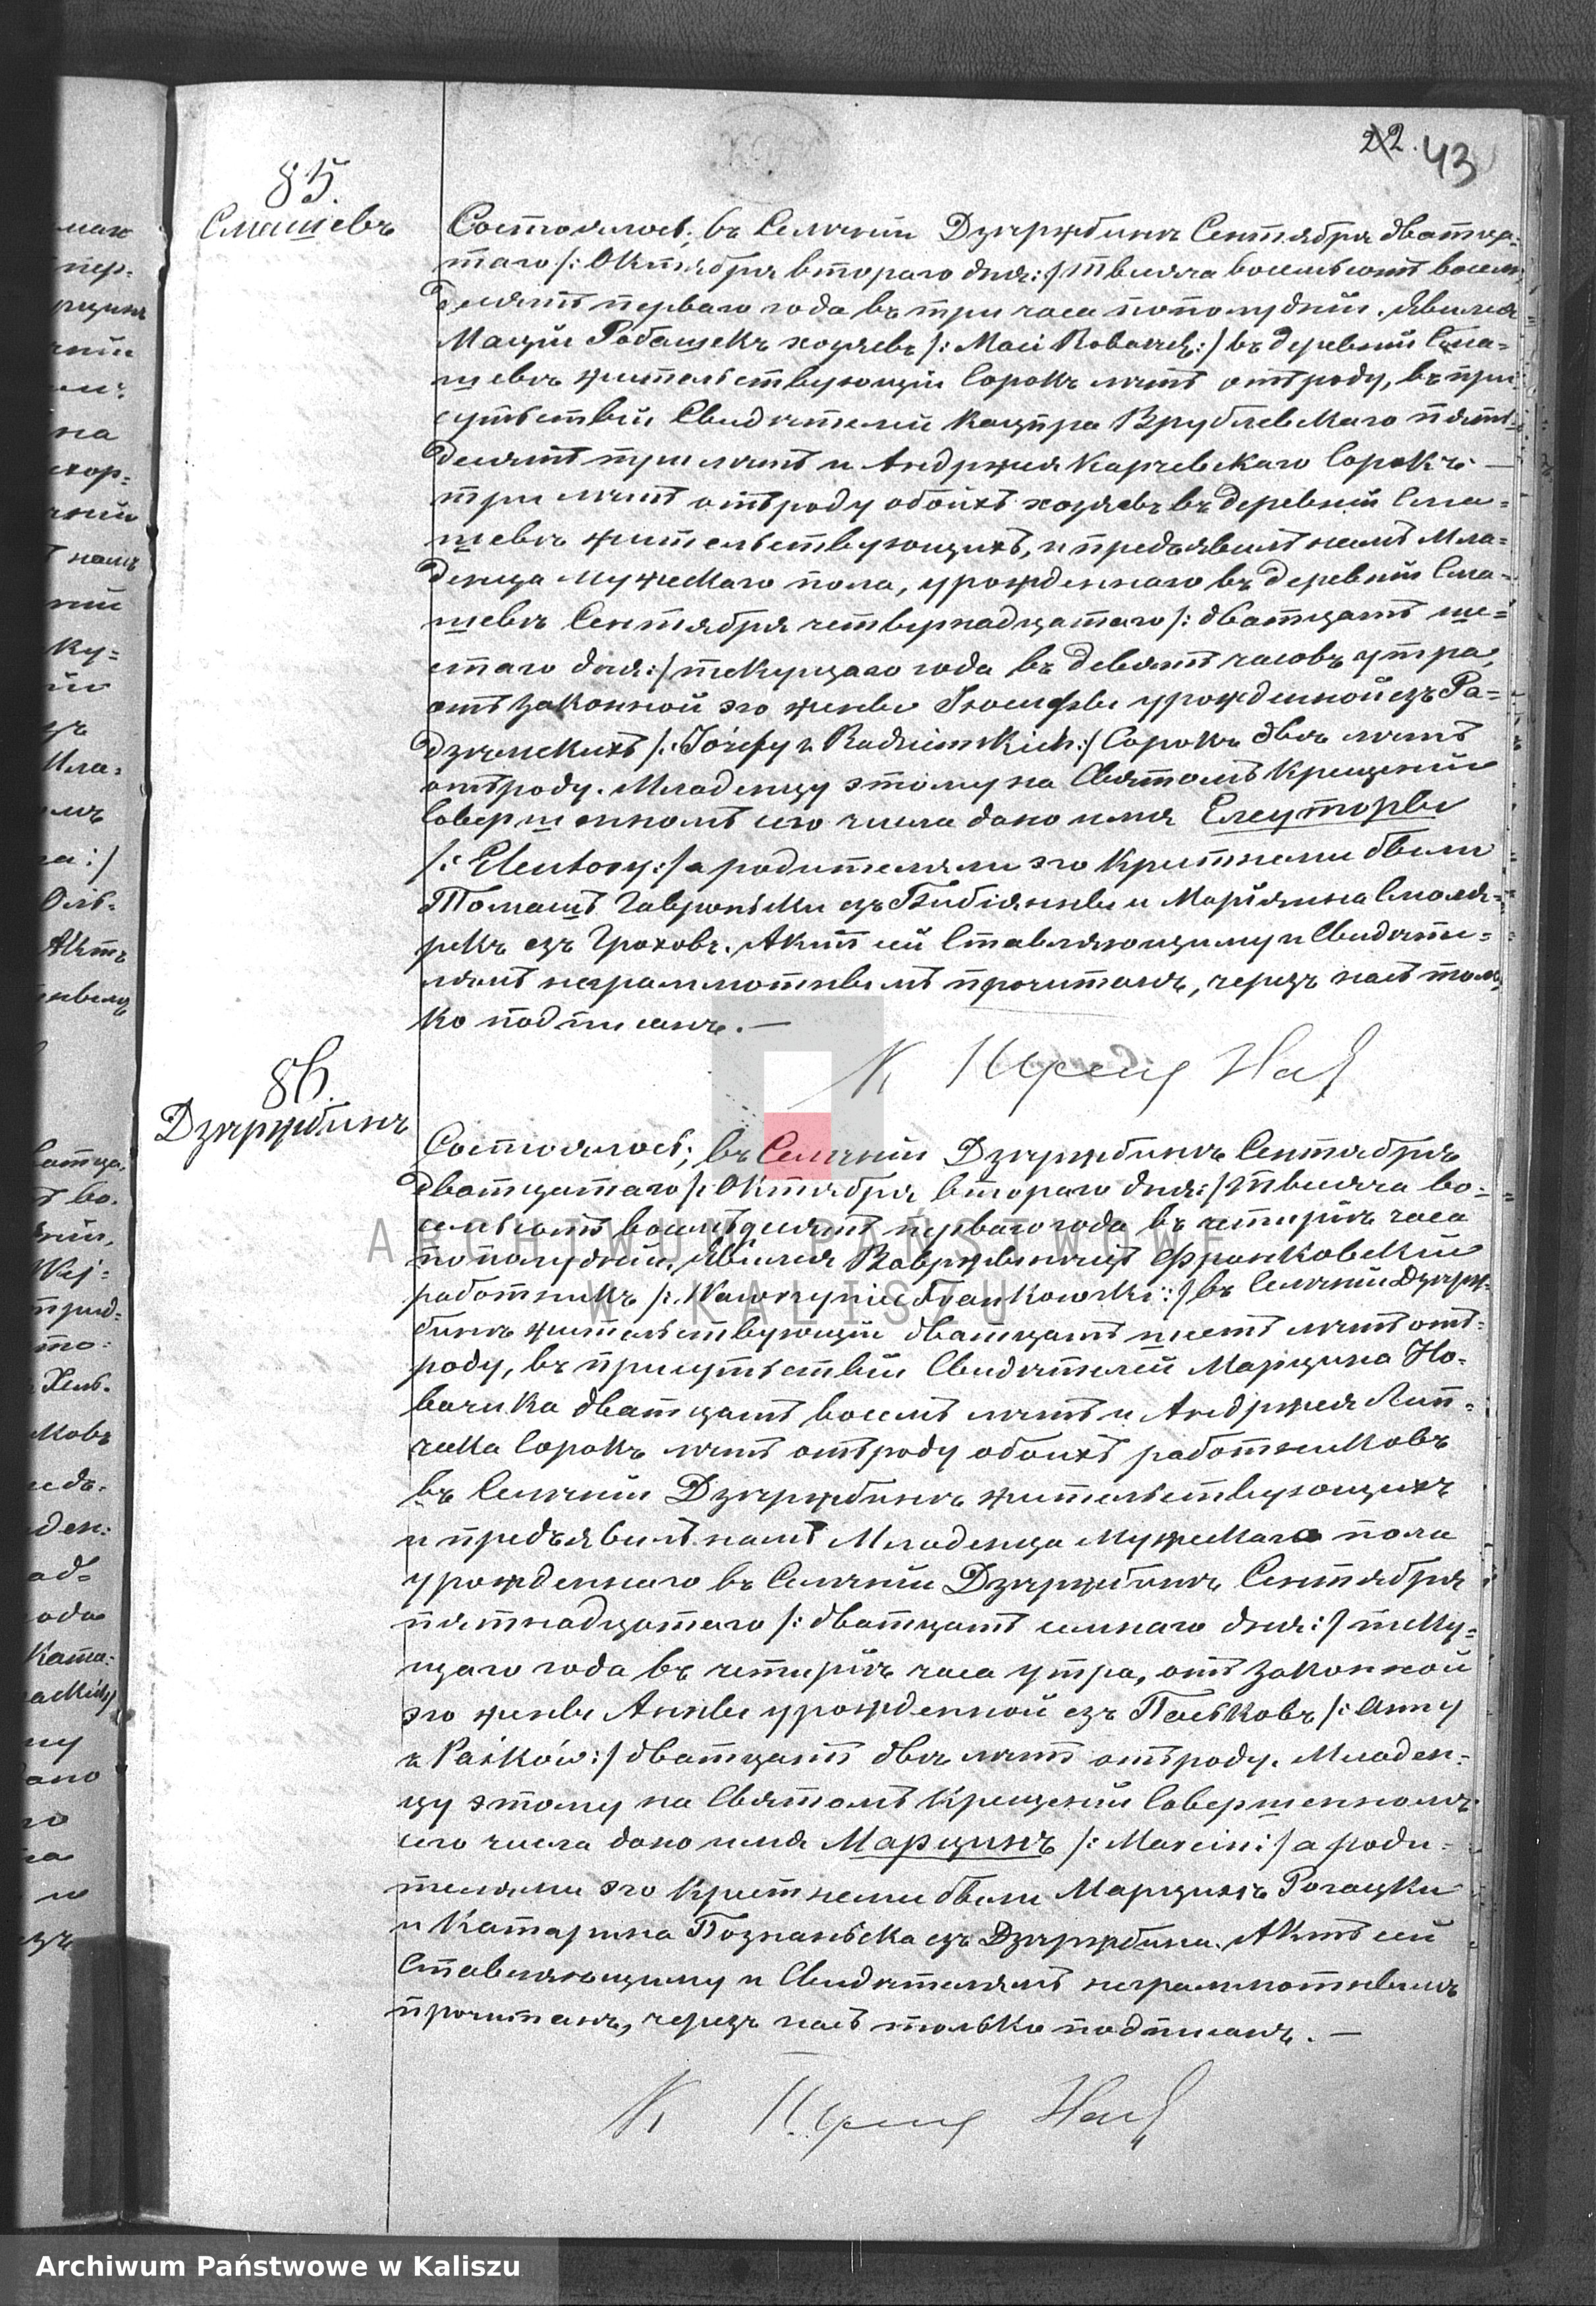 22. 43
85.
Смашевъ
Состоялось; въ Селѣніи Дзѣржбинѣ Сентября двадца-
таго /: Октября втораго дня :/ тысяча восемьсотъ восемь
десятъ перваго года въ три часа пополудніи. Явился
Мацѣй Робашекъ хозяевъ /: Maci :/ въ деревніи Сма-
шевѣ жительствующій сорокъ лѣтъ отъ роду, въ при
сутьствіи Свидѣтелей Кацпра Врублевскаго пять-
десятъ три лѣтъ и Андржея Карчевскаго Сорокъ —
три лѣтъ отъ роду обоихъ хозяевъ въ деревніи Сма-
шевѣ жительствующихъ, и предъявилъ намъ Мла-
денца мужескаго пола, урожденнаго въ деревніи Сма-
шевѣ Сентября четвернадцатаго /: дватцать ше-
стаго дня :/ текущаго года въ девять часовъ утра,
отъ законной эго жены Іюзефы урожденной езъ Ра-
дзѣмскихъ /: Józefy z Radziemskich :/ Сорокъ двѣ лѣтъ
отъ роду. Младенцу этому на Святомъ Крещеніи
Совершенномъ сего числа дано имя Елеуторы
/: Eleutory :/ а родителями эго крестнеми были
Томашъ Гавроньски езъ Бибіянны и Маріянна Столя-
рекъ езъ Гроховъ. Актъ сей Ставляющему и Свидѣте-
лямъ неграммотнымъ прочитанъ, черезъ насъ толь
ко подписанъ. —
86.
Дзѣржбинъ
Состоялось; въ Селѣніи Дзѣржбинѣ Сентября
дватцатаго /: Октября втораго дня :/ тысяча во-
семьсотъ восемьдесятъ перваго года въ четиріѣ часа
пополудніи. Явился Вавржынѣцъ Франковскій
работникъ /: Wawrzyniec Frankowski :/ въ Селѣніи Дзѣрж-
бинѣ жительствующій дватцать шесть лѣтъ отъ-
роду, въ присутьствіи Свидѣтелей Марцина Но-
вачика дватцать восемъ лѣтъ и Андржея Лип-
чака Сорокъ лѣтъ отъ роду обоихъ работниковъ
въ Селѣніи Дзѣржбинѣ жительствующихъ
и предъявилъ намъ Младенца Мужескаго пола
урожденнаго въ Селѣніи Дзѣржбинѣ Сентября
пятнадцатаго /: дватцать семнаго дня :/ теку-
щаго года въ четиріѣ часа утра, отъ законной
эго жены Анны урожденной езъ Паськовъ /: Anny
z Paśków :/ дватцать двѣ лѣтъ отъ роду. Младен-
цу этому на Святомъ Крещеніи Совершенномъ
сего числа дано имя Марцинъ /: Marcin :/ а роди-
телями эго крестнеми были Марцинъ Рогацки
и Катарина Познаньска езъ Дзѣржбина. Актъ сей
Ставляющему и Свидѣтелямъ неграммотнымъ
прочитанъ, черезъ насъ только подписанъ. —
ARCHIWUM PAŃSTWOWE
W KALISZU
Archiwum Państwowe w Kaliszu